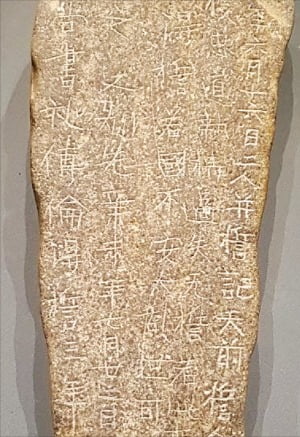 年六月十六日二人幷誓記天前誓今
後忠道執持過失无誓若此
得誓若國不安大亂世可
又別先辛未年七月廿二日
尙書禮傳倫得誓三年